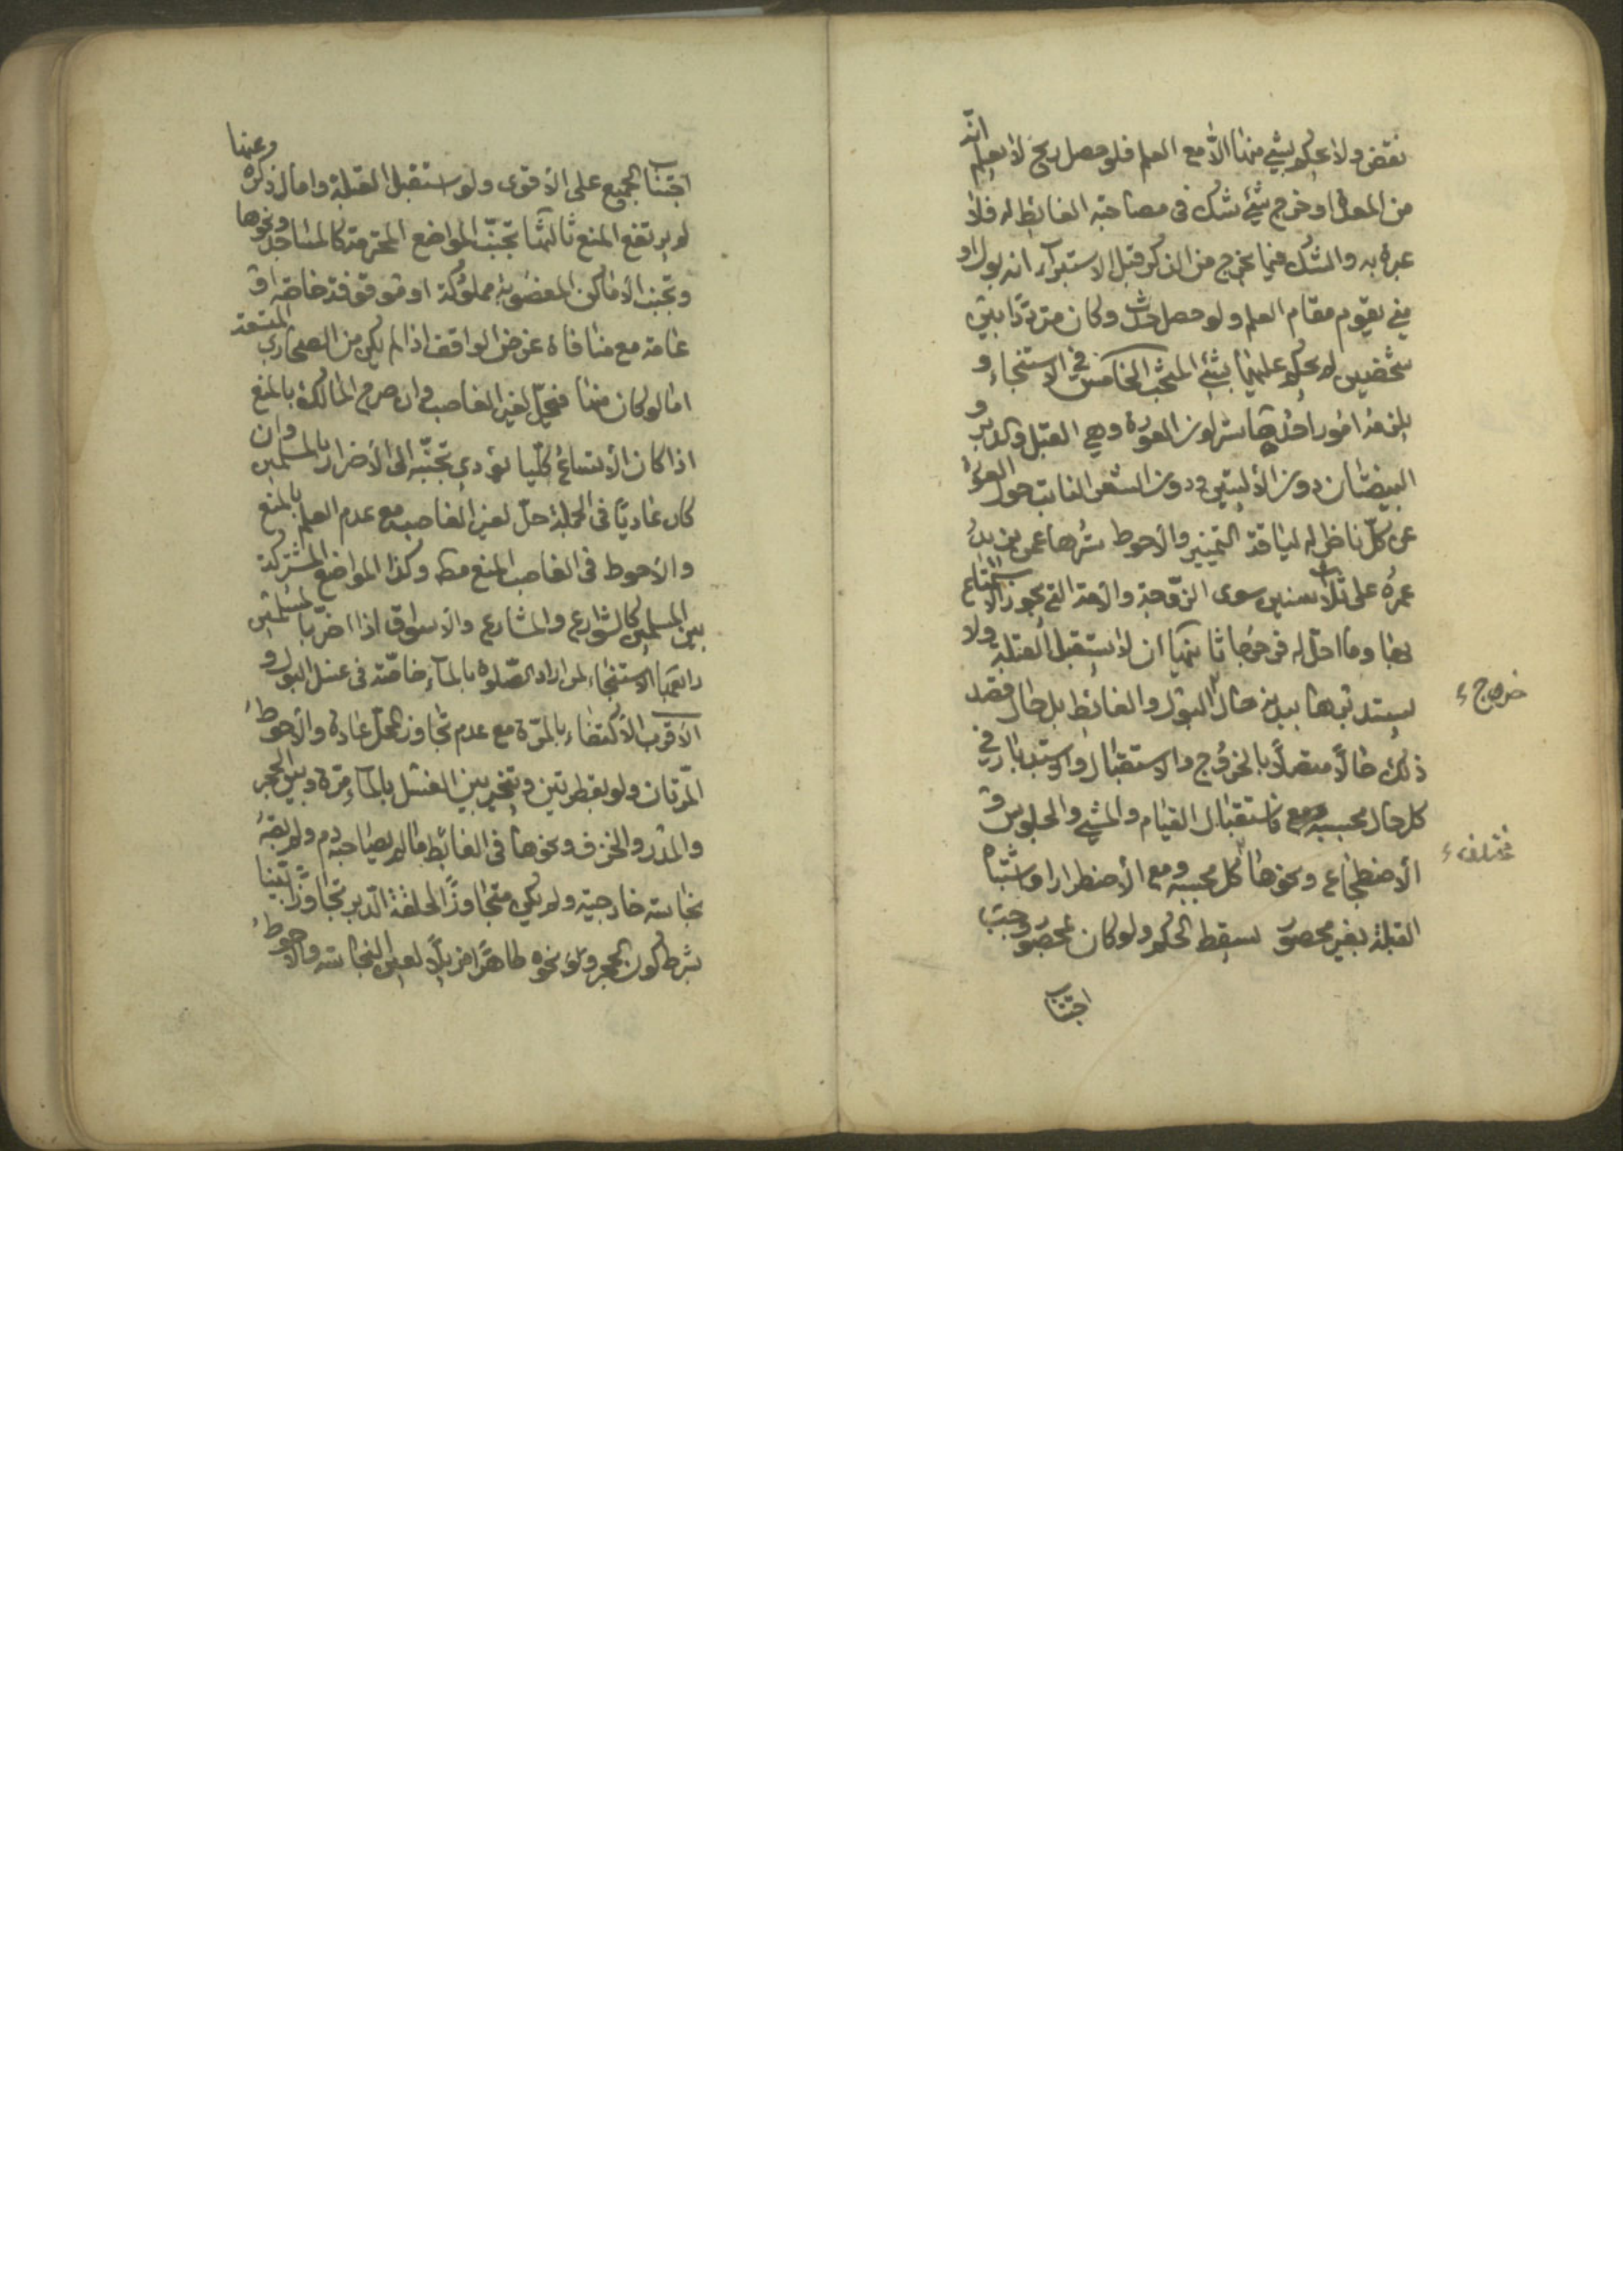 نقض ولا يحكم بشئ منها الّا مع العلم فلو حصل ريح لا يعلم انّه
من المعدة او خرج شئ يشك في مصاحبة الغائط له فلا
عبرة به والمشكوك فيما يخرج من الذكر قبل الاستبراء انه بول او
مني يقوم مقام العلم ولو حصل حدث وكان مترددًا بين
شخصين لم يحكم عليهما بشئ المبحث الخامس في الاستنجاء و
يلزم فيه امور احدها ستر لون العورة وهي القبل والدبر و
البيضتان دون الأليتين ودون الشعر النابت حول العورة
عن كلّ ناظر له لياقة التمييز والأحوط سترها عمن يزيد
عمره على ثلاث سنين سوى الزّوجة والأمة التي يجوز الاستمتاع
بها وما احلّ له فرجها ثانيها ان لا يستقبل القبلة ولا
يستدبرها ببدنه حال البول والغائط بل حال قصد
خروج
ذلك حالًا متصلًا بالخروج والاستقبال والاستدبار في
كل حال بحسبه فاستقبال القيام والمشي والجلوس و
مختلف
الأضطجاع ونحوها كل بحسبه ومع الأضطرار او اشتباه
القبلة بغير محصور يسقط الحكم ولو كان بمحصور وجب
اجتناب
اجتناب الجميع على الأقوى ولو استقبل القبلة واما ل ذكره وعنها
لم يرتفع المنع ثالثها تجنّب المواضع المحترمة كالمساجد ونحوها
وتجنب الأماكن المغصوبة مملوكة او موقوفة خاصّة او
عامة مع منافاة غرض الواقف اذا لم يكن من الصحاري المتسعة
اما لو كان منها فيحلّ لغير الغاصب وان صرح المالك بالمنع
اذا كان الأتساع كلّيا يؤدي تجنّبه الى الأضرار بالمسلمين وان
كان عاديًا في الجملة حلّ لغير الغاصب مع عدم العلم بالمنع
والأحوط في الغاصب المنع مط وكذا المواضع المشتركة
بين المسلمين كالشوارع والمشارع والأسواق اذا اضرّ بالمسلمين
رابعها الاستنجاء لمن اراد الصّلوة بالماء خاصّة في غسل البول و
الأقرب الأكتفاء بالمرّة مع عدم تجاوز المحلّ عادة والأحوط
المرّتان ولو بقطرتين ويتخير بين الغسل بالماء مرّة وبين الحجر
والمدر والخزف ونحوها في الغائط ما لم يصاحبه دم ولم يصبه
نجاسة خارجية ولم يكن متجاوزًا لحلقة الدّبر تجاوزًا بيّنا
بشرط كون الحجر ونحوه طاهرًا مزيلًا لعين النجاسة والأحوط